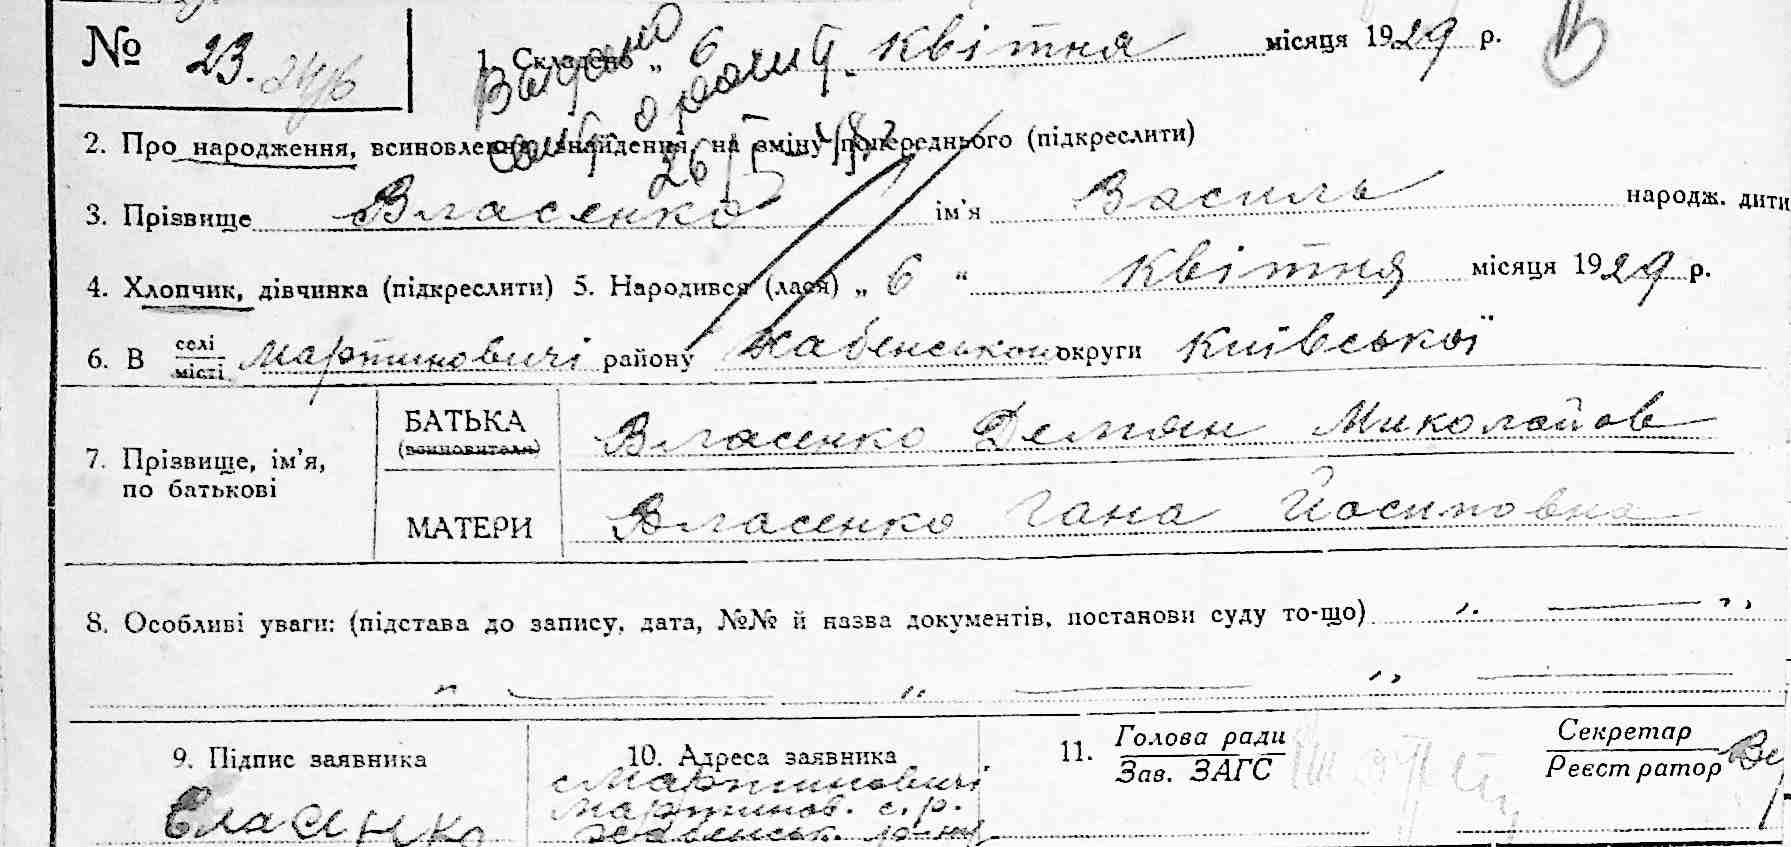 № 23.
1. Складено „ 6 квітня місяця 1929 р.
Видано
2. Про народження, всиновлення, знайдення, на зміну попереднього (підкреслити)
3. Прізвище Власенко ім'я Василь народж. дити
4. Хлопчик, дівчинка (підкреслити) 5. Народився (лася) „ 6 “ квітня місяця 1929 р.
6. В селі/місті Мартиновичі району Хабенського округи Київської
7. Прізвище, ім'я,
по батькові
БАТЬКА
(всиновителя)
Власенко Демян Миколайов
МАТЕРИ
Власенко Гана Йосиповна
8. Особливі уваги: (підстава до запису, дата, №№ й назва документів, постанови суду то-що) „ — „
„ — „ — „ —
9. Підпис заявника
Власенко
10. Адреса заявника
с Мартиновичі
Мартинов. с. р.
Хабенськ. р-ну
11. Голова ради
Зав. ЗАГС
Секретар
Реєстратор